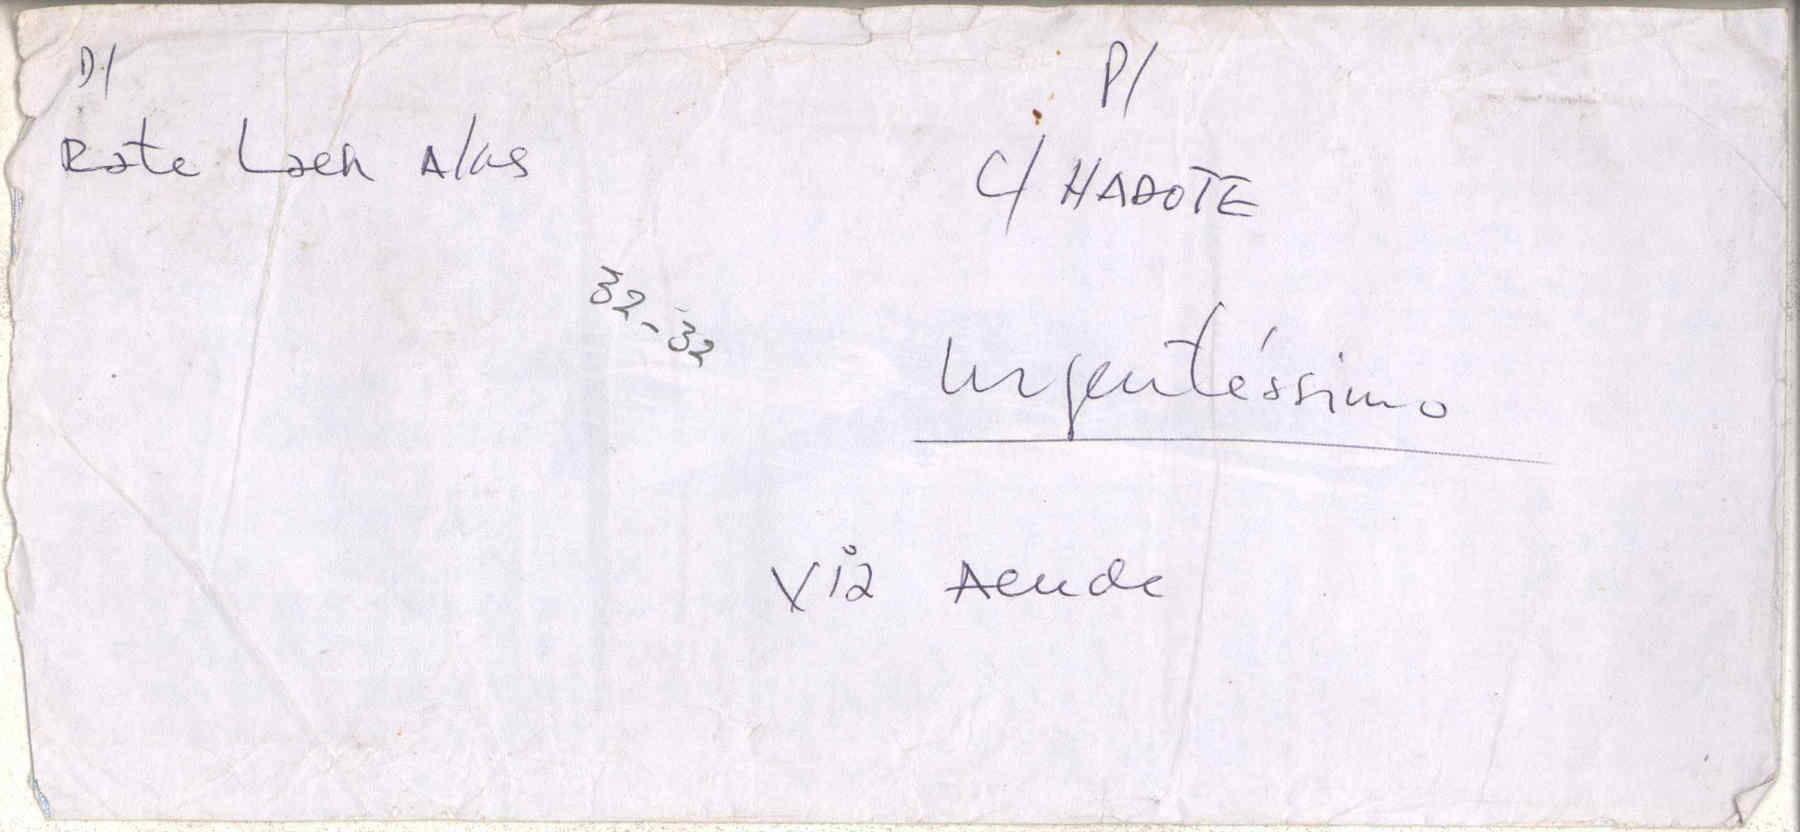 D/
P/
Rate Laek Alus
C/ HADOTE
32-32
Urgentéssimo
Via Aeude